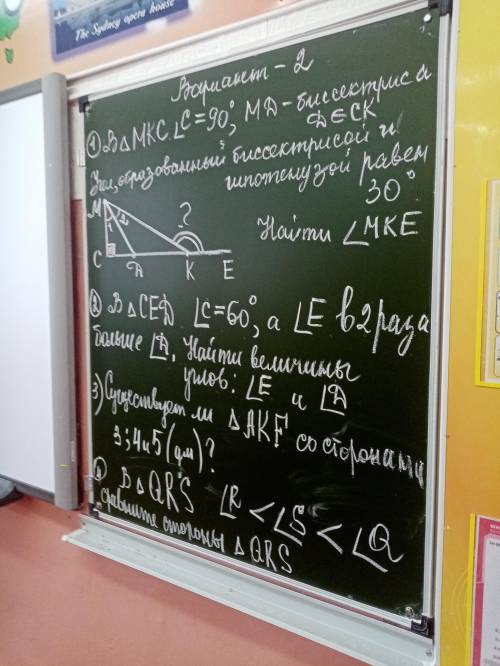 The Sydney opera house
Вариант - 2
① В △ MKC. ∠C = 90°, MД - биссектриса
Д ∈ CK
Угол, образованный биссектрисой и
гипотенузой равен
30°
Найти ∠MKE
M
1 2
?
C Д K E
② В △ CEД ∠C = 60°, а ∠E в 2 раза
больше ∠Д. Найти величины
углов: ∠E и ∠Д
3) Существует ли △ AKF со сторонами
3; 4 и 5 (дм)?
④ В △ QRS ∠R < ∠S < ∠Q
сравните стороны △ QRS